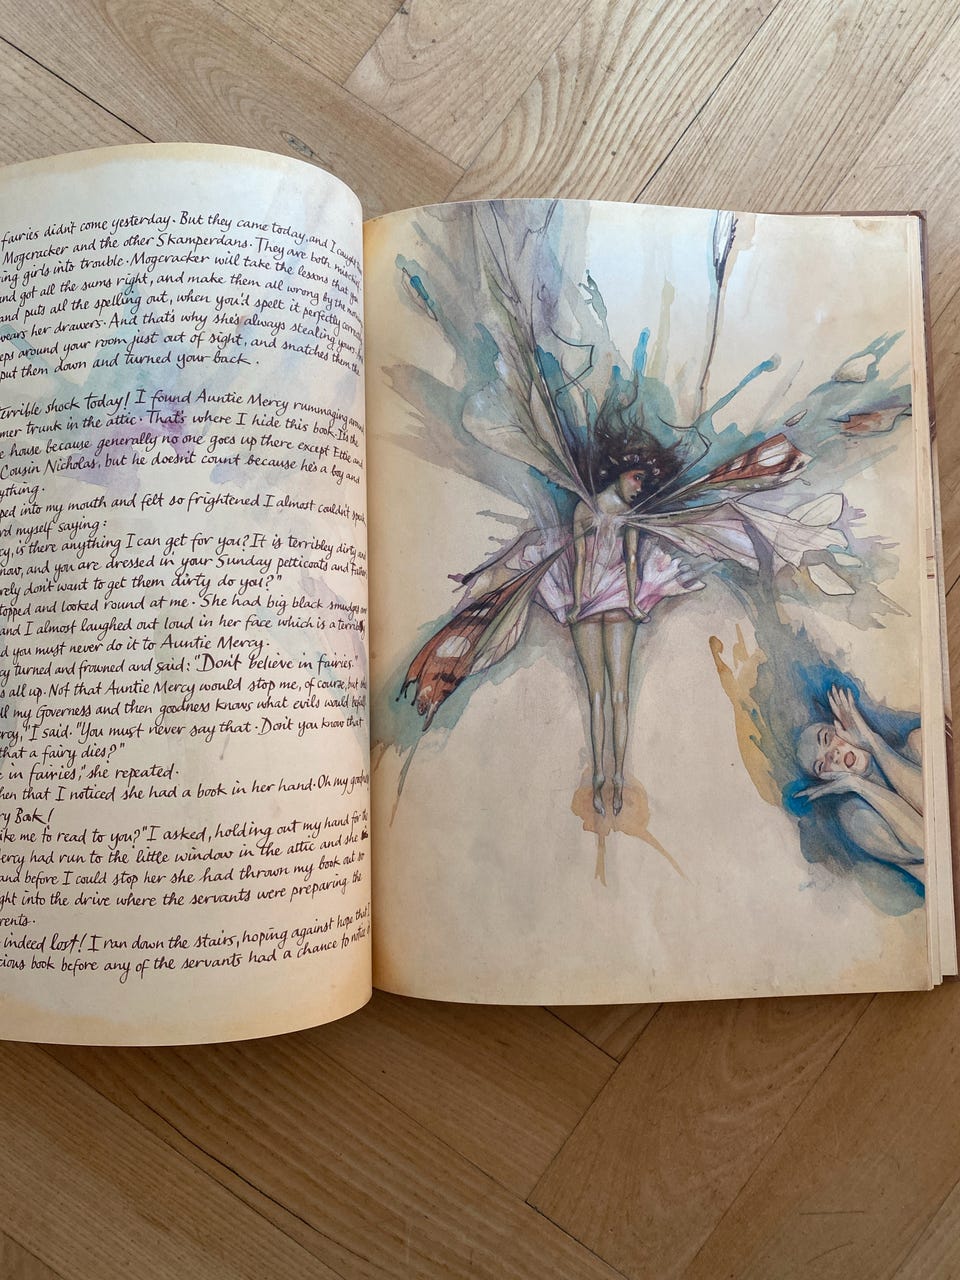 fairies didn't come yesterday. But they came today, and I caught
Mogcracker and the other Skamperdans. They are both
ing girls into trouble. Mogcracker will take the lessons that you
and got all the sums right, and make them all wrong by the
and puts all the spelling out, when you'd spelt it perfectly
wears her drawers. And that's why she's always stealing yours.
eps around your room just out of sight, and snatches them the
put them down and turned your back.
terrible shock today! I found Auntie Mercy rummaging
mer trunk in the attic. That's where I hide this book. It's the
e house because generally no one goes up there except Ettie and
Cousin Nicholas, but he doesn't count because he's a boy and
ything.
ped into my mouth and felt so frightened I almost couldn't
rd myself saying:
cy, is there anything I can get for you? It is terribley dirty
now, and you are dressed in your Sunday petticoats and
rely don't want to get them dirty do you?"
topped and looked round at me. She had big black smudges
and I almost laughed out loud in her face which is a
d you must never do it to Auntie Mercy.
cy turned and frowned and said: "Don't believe in fairies."
s all up. Not that Auntie Mercy would stop me, of course, but
ll my Governess and then goodness knows what evils would
ercy," I said. "You must never say that. Don't you know that
that a fairy dies?"
e in fairies," she repeated.
hen that I noticed she had a book in her hand. Oh my
ry Bok!
ike me to read to you?" I asked, holding out my hand for
ercy had run to the little window in the attic and she
and before I could stop her she had thrown my book out
ght into the drive where the servants were preparing the
rents.
indeed lost! I ran down the stairs, hoping against hope that I
cious book before any of the servants had a chance to notice